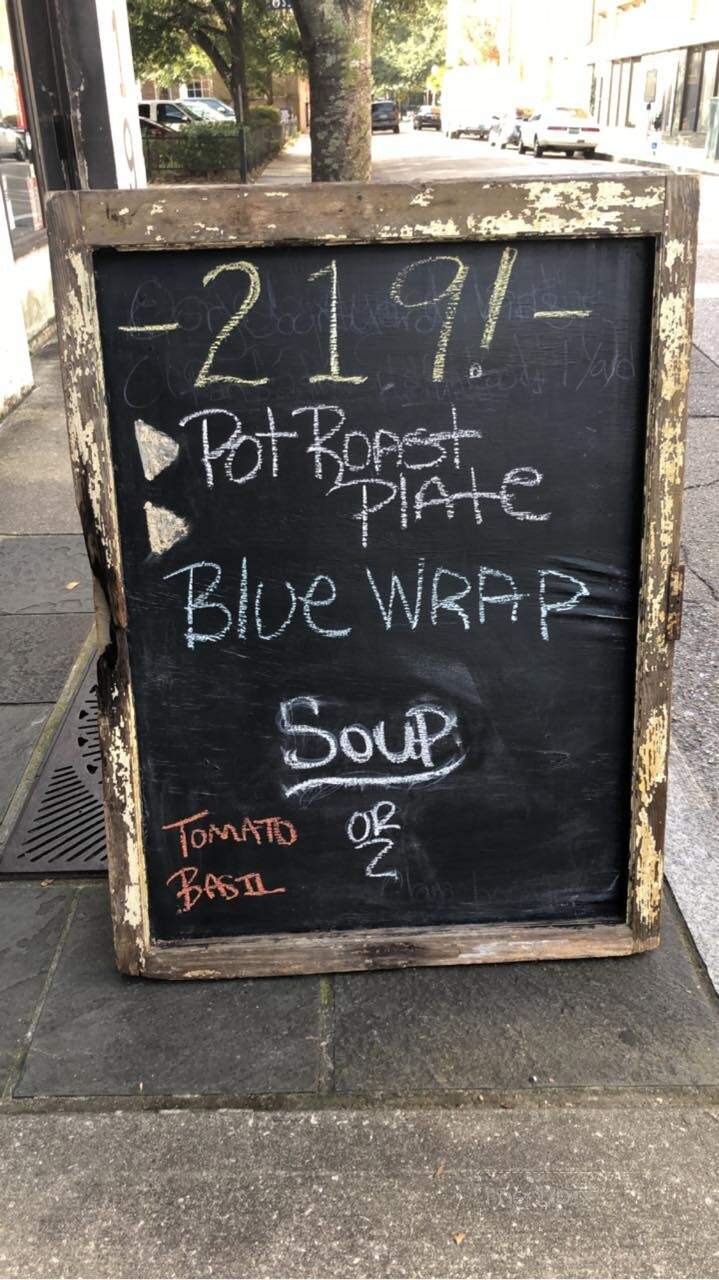 -219!-
Pot Roast
Plate
Blue WRAP
Soup
TOMATO
BASIL
OR
2